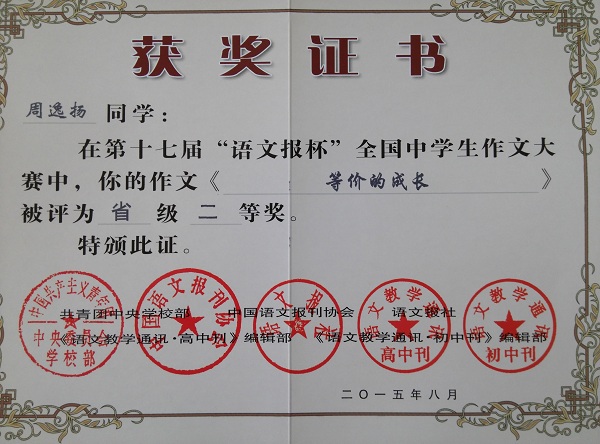 获奖证书
周逸扬 同学：
在第十七届“语文报杯”全国中学生作文大
赛中，你的作文《 等价的成长 》
被评为 省 级 二 等奖。
特颁此证。
共青团中央学校部 中国语文报刊协会 语文报社
《语文教学通讯·高中刊》编辑部 《语文教学通讯·初中刊》编辑部
中国共产主义青年团
中央委员会
学校部
中国语文报刊协会
语文报社
语文教学通讯
高中刊
语文教学通讯
初中刊
二〇一五年八月